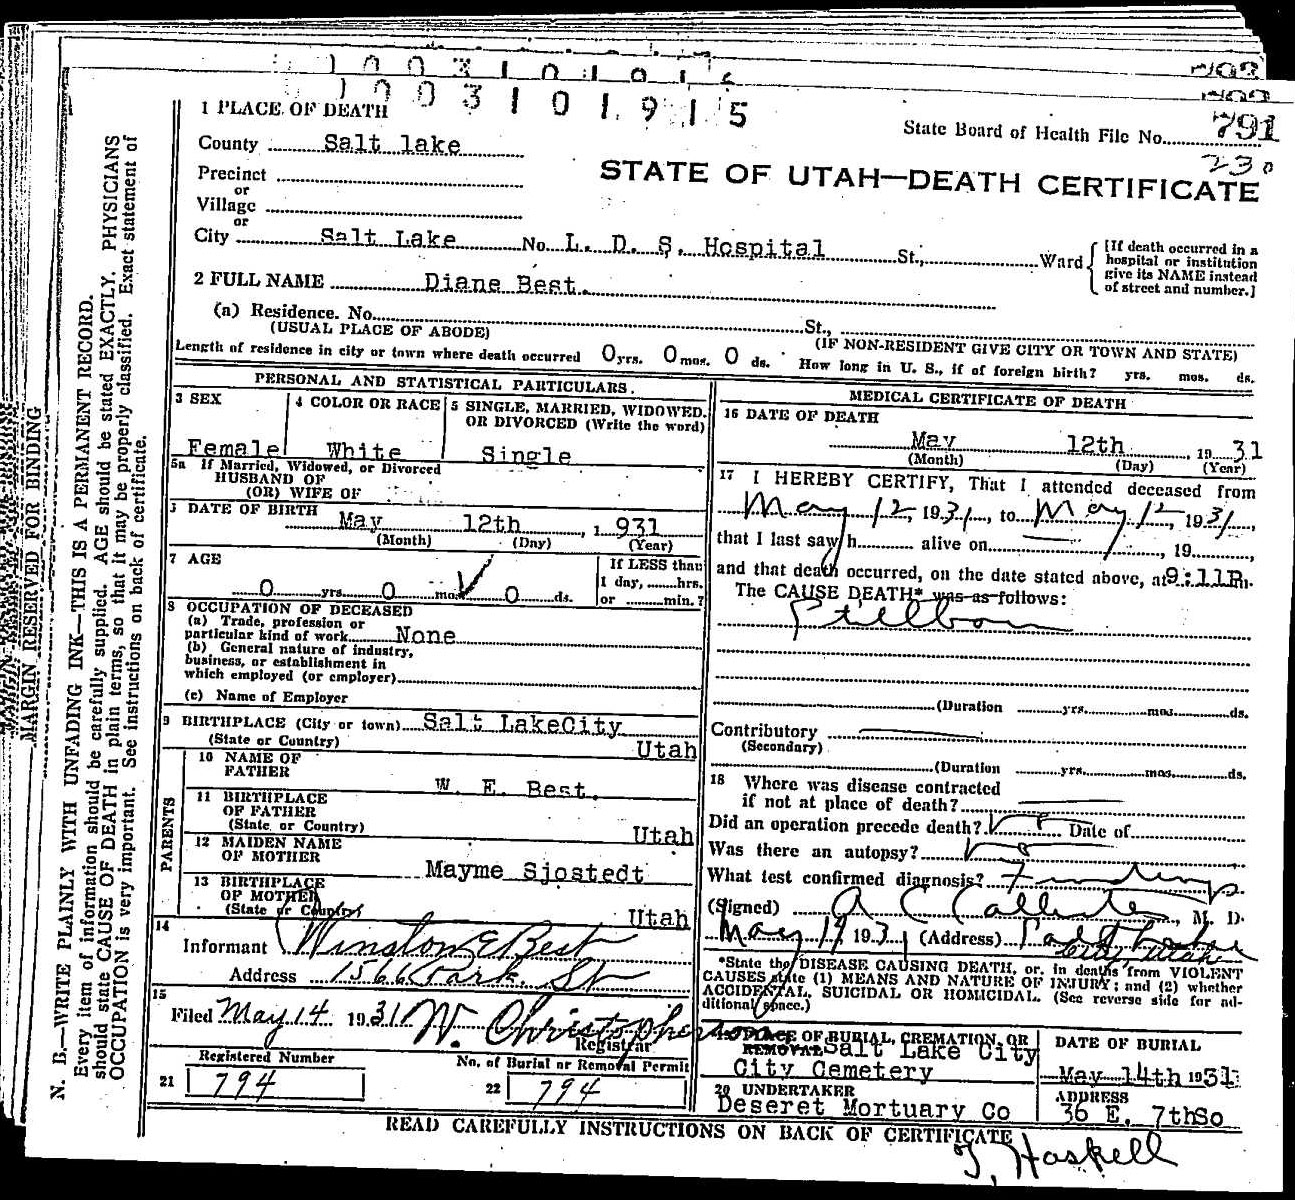 1003101915
1 PLACE OF DEATH
State Board of Health File No. 791
230
County Salt lake
STATE OF UTAH—DEATH CERTIFICATE
Precinct
or
Village
or
City Salt Lake No. L. D. S. Hospital St., Ward
[If death occurred in a
hospital or institution
give its NAME instead
of street and number.]
2 FULL NAME Diane Best.
(a) Residence. No. St.,
(USUAL PLACE OF ABODE) (IF NON-RESIDENT GIVE CITY OR TOWN AND STATE)
Length of residence in city or town where death occurred 0 yrs. 0 mos. 0 ds. How long in U. S., if of foreign birth? yrs. mos. ds.
PERSONAL AND STATISTICAL PARTICULARS.
3 SEX
Female
4 COLOR OR RACE
White
5 SINGLE, MARRIED, WIDOWED,
OR DIVORCED (Write the word)
Single
5a If Married, Widowed, or Divorced
HUSBAND OF
(OR) WIFE OF
DATE OF BIRTH
May 12th, 1931
(Month) (Day) (Year)
7 AGE
0 yrs. 0 mos. 0 ds.
If LESS than
1 day, hrs.
or min.?
8 OCCUPATION OF DECEASED
(a) Trade, profession or
particular kind of work None
(b) General nature of industry,
business, or establishment in
which employed (or employer)
(c) Name of Employer
9 BIRTHPLACE (City or town) Salt LakeCity
(State or Country) Utah
PARENTS
10 NAME OF
FATHER W. E. Best.
11 BIRTHPLACE
OF FATHER
(State or Country) Utah
12 MAIDEN NAME
OF MOTHER Mayme Sjostedt
13 BIRTHPLACE
OF MOTHER
(State or Country) Utah
14
Informant Winston E Best
Address 1566 Park. St
15
Filed May 14 1931 W. Christopherson
Registrar
Registered Number
21 794
No. of Burial or Removal Permit
22 794
MEDICAL CERTIFICATE OF DEATH
16 DATE OF DEATH
May 12th 1931
(Month) (Day) (Year)
17 I HEREBY CERTIFY, That I attended deceased from
May 12, 1931, to May 12, 1931,
that I last saw h alive on , 19 ,
and that death occurred, on the date stated above, at 9:11P.m.
The CAUSE DEATH* was as follows:
Stillborn
(Duration yrs. mos. ds.
Contributory
(Secondary)
(Duration yrs. mos. ds.
18 Where was disease contracted
if not at place of death?
Did an operation precede death? Date of
Was there an autopsy?
What test confirmed diagnosis? Findings
(Signed) A C Callister, M. D.
May 14 1931 (Address) Salt Lake
City, Utah
*State the DISEASE CAUSING DEATH, or, in deaths from VIOLENT
CAUSES state (1) MEANS AND NATURE OF INJURY; and (2) whether
ACCIDENTAL, SUICIDAL OR HOMICIDAL. (See reverse side for ad-
ditional space.)
19 PLACE OF BURIAL, CREMATION, OR
REMOVAL Salt Lake City
City Cemetery
DATE OF BURIAL
May 14th 1931
20 UNDERTAKER
Deseret Mortuary Co
ADDRESS
36 E. 7thSo
READ CAREFULLY INSTRUCTIONS ON BACK OF CERTIFICATE
T, Haskell
MARGIN RESERVED FOR BINDING
N. B.—WRITE PLAINLY WITH UNFADING INK—THIS IS A PERMANENT RECORD.
Every item of information should be carefully supplied. AGE should be stated EXACTLY. PHYSICIANS
should state CAUSE OF DEATH in plain terms, so that it may be properly classified. Exact statement of
OCCUPATION is very important. See instructions on back of certificate.